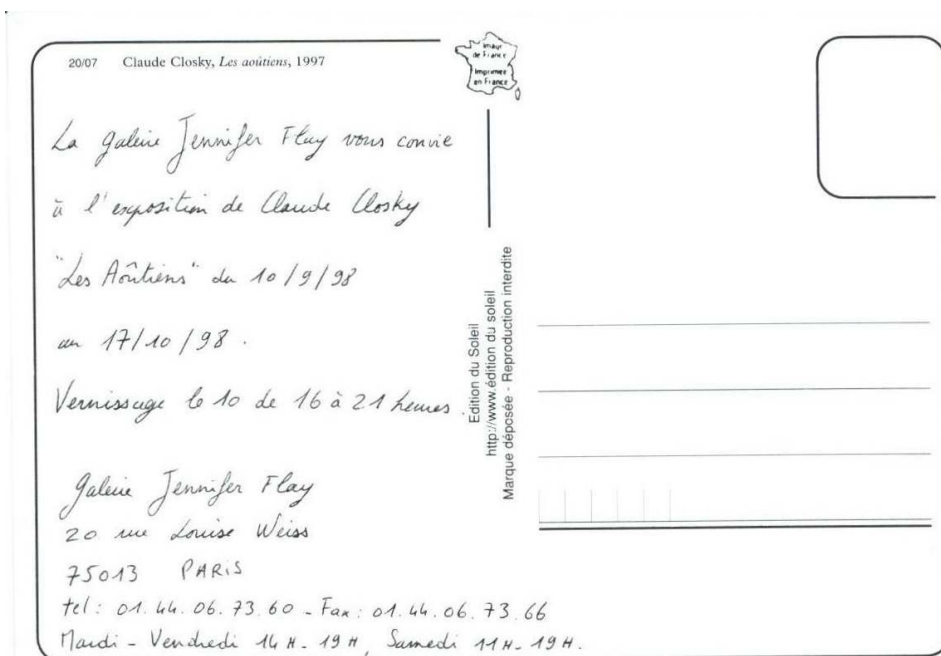 20/07 Claude Closky, Les aoûtiens, 1997
La galerie Jennifer Flay vous convie
à l'exposition de Claude Closky
"Les Aoûtiens" du 10/9/98
au 17/10/98.
Vernissage le 10 de 16 à 21 heures.
galerie Jennifer Flay
20 rue Louise Weiss
75013 PARIS
tel : 01.44.06.73.60 - Fax : 01.44.06.73.66
Mardi - Vendredi 14H - 19H, Samedi 11H - 19H.
Image
de France
Imprimée
en France
Edition du Soleil
http://www.édition du soleil
Marque déposée - Reproduction interdite